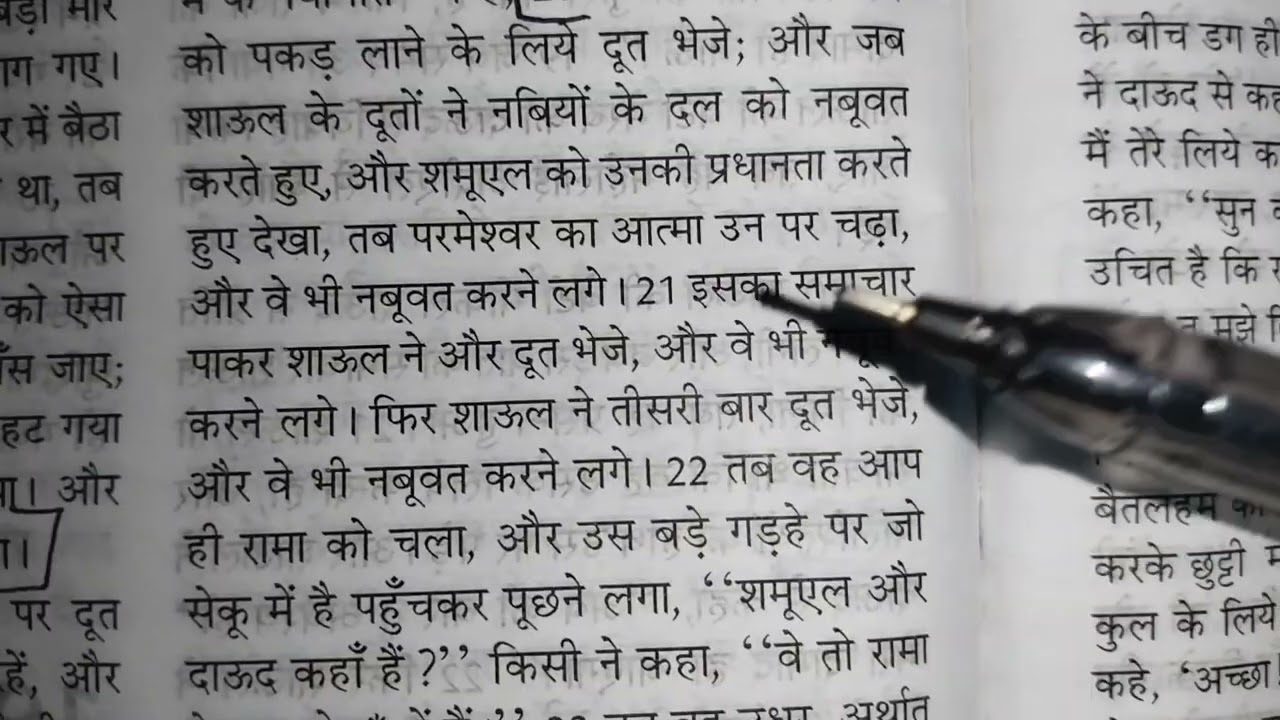 को पकड़ लाने के लिये दूत भेजे; और जब
शाऊल के दूतों ने नबियों के दल को नबूवत
करते हुए, और शमूएल को उनकी प्रधानता करते
हुए देखा, तब परमेश्वर का आत्मा उन पर चढ़ा,
और वे भी नबूवत करने लगे। 21 इसका समाचार
पाकर शाऊल ने और दूत भेजे, और वे भी
करने लगे। फिर शाऊल ने तीसरी बार दूत भेजे,
और वे भी नबूवत करने लगे। 22 तब वह आप
ही रामा को चला, और उस बड़े गड़हे पर जो
सेकू में है पहुँचकर पूछने लगा, “शमूएल और
दाऊद कहाँ हैं?” किसी ने कहा, “वे तो रामा
अर्थात
गए।
में बैठा
था, तब
पर
को ऐसा
जाए;
हट गया
और
पर दूत
हैं, और
के बीच डग ही
ने दाऊद से
मैं तेरे लिये
कहा, “सुन
उचित है कि
मुझे
बैतलहम
करके छुट्टी
कुल के लिये
कहे, ‘अच्छा!